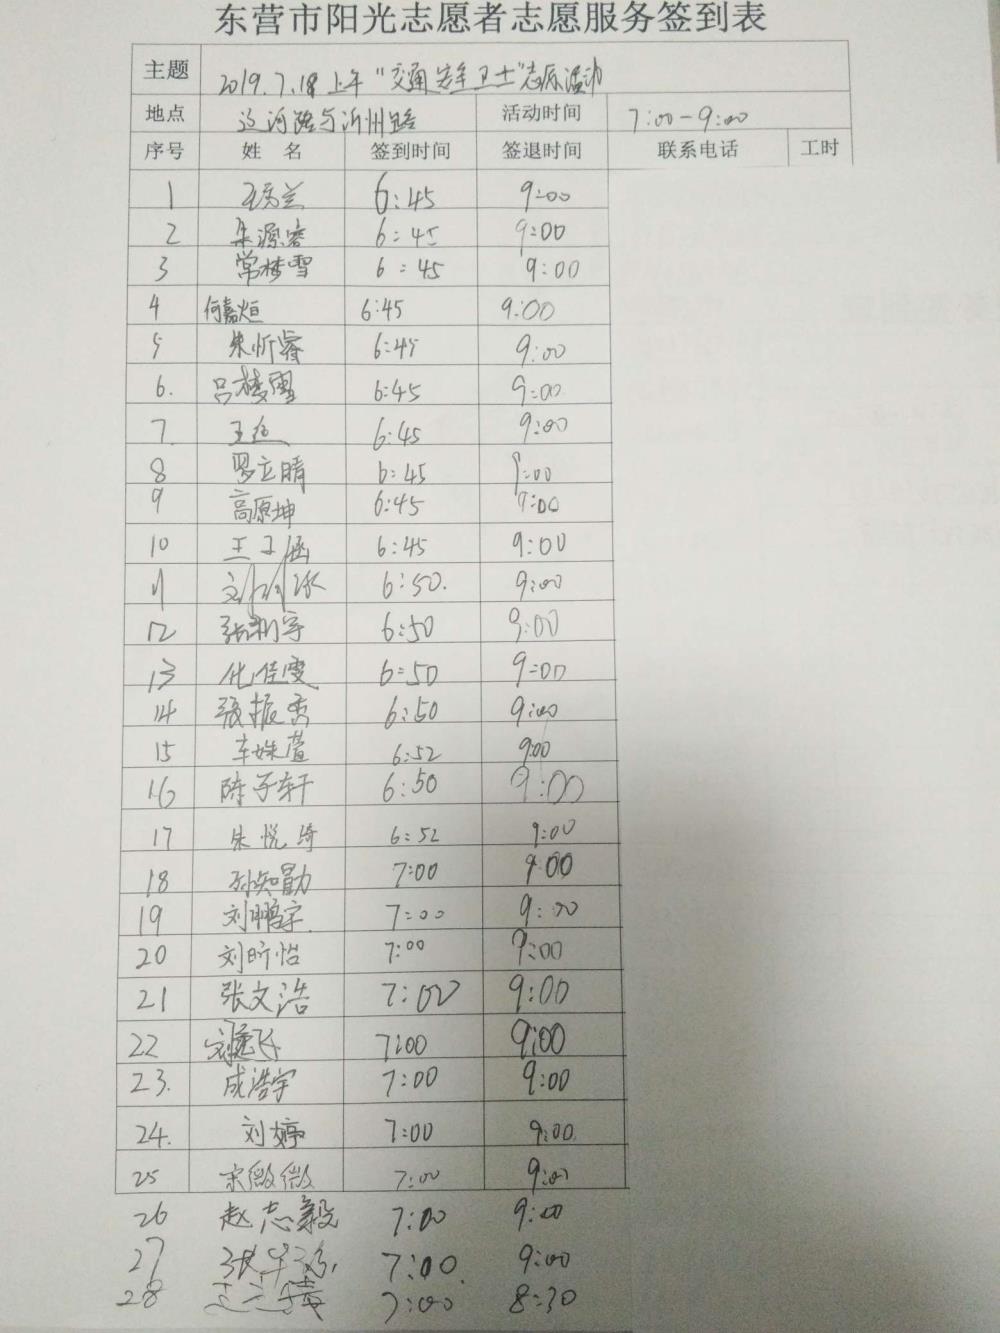 东营市阳光志愿者志愿服务签到表
主题 2019.7.18上午“交通安全卫士”志愿活动
地点 辽河路与沂州路 活动时间 7:00-9:00
序号 姓 名 签到时间 签退时间 联系电话 工时
1 6:45 9:00
2 朱源睿 6:45 9:00
3 常梦雪 6:45 9:00
4 何嘉烜 6:45 9:00
5 朱忻睿 6:45 9:00
6. 吕梭雪 6:45 9:00
7. 6:45 9:00
8 罗立晴 6:45 9:00
9 高原坤 6:45 9:00
10 王子涵 6:45 9:00
11 6:50. 9:00
12 6:50 9:00
13 化佳雯 6:50 9:00
14 张振秀 6:50 9:00
15 车姝萱 6:52 9:00
16 陈子轩 6:50 9:00
17 朱悦绮 6:52 9:00
18 孙知勖 7:00 9:00
19 刘鹏宇 7:00 9:00
20 刘昕怡 7:00 9:00
21 张文浩 7:00 9:00
22 7:00 9:00
23. 成浩宇 7:00 9:00
24. 刘婷 7:00 9:00
25 宋微微 7:00 9:00
26 赵志毅 7:00 9:00
27 7:00. 9:00
28 7:00 8:30